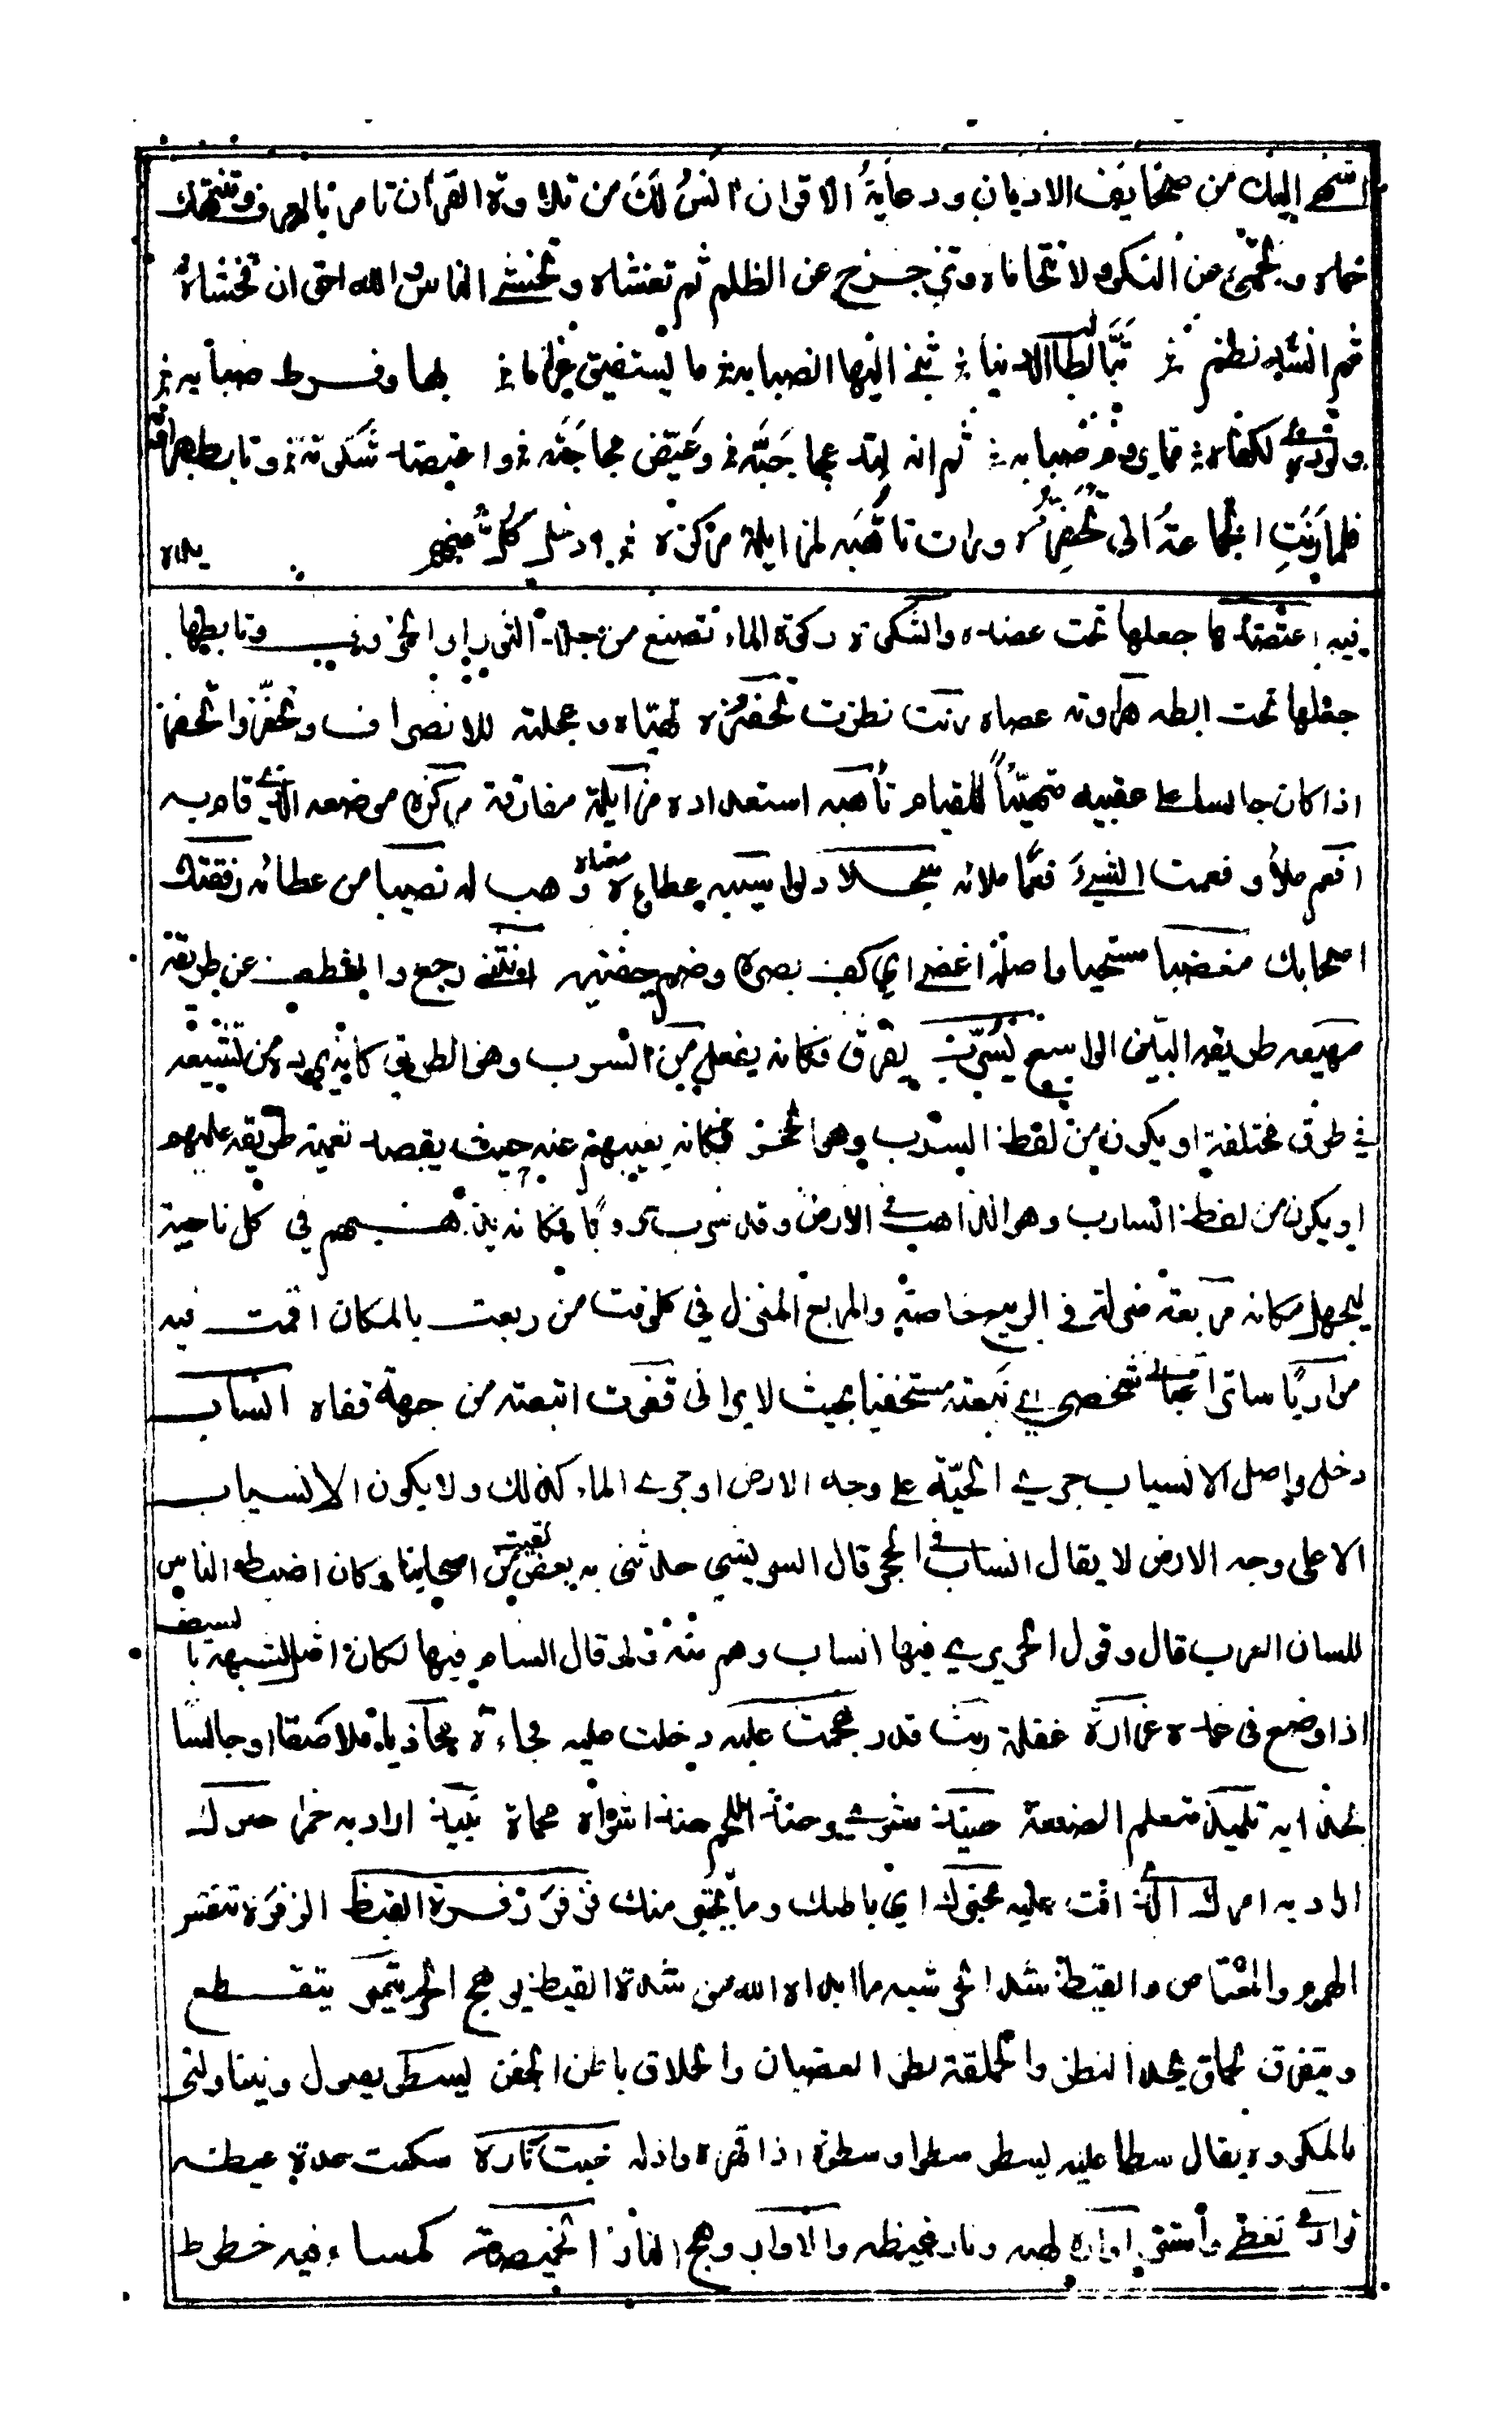 اشهى إليك من صحايف الاديان ودعابة الاقران انس لك من تلاوة القرأن تامر بالعرف وتنتهك
حماه وتحمى عن النكر ولا تتحاماه وتزحزح عن الظلم ثم تغشاه وتخشى الناس والله احق ان تخشاه
ثم انشد نظم تبا لطالب دنيا ثنى اليها انصبابه ما يستفيق غراما بها وفرط صبابه
ولو درى لكفاه مما يروم صبابه ثم انه لبد عجاجته وغيض مجاجته واعتضد شكوته وتابط هراوته
فلما رنت الجماعة الى تحفزه ورات تاهبه لمزايلة مركزه ادخل كل منهم يده
فيه اعتضدها جعلها تحت عضده والشكوة ركوة الماء تصنع من جلد وتابطها
جعلها تحت ابطه هراوته عصاه رنت نظرت تحفزه تهياه وعجلته للانصراف وتحفز واتحفز
اذا كان جالسا على عقبيه متهيئا للقيام تأهبه استعداده مزايلة مفارقة مركزه موضعه الذي قام به
افعم ملأ وفعمت الشيء فعما ملاته سجلا دلوا سيبه عطاءه معناه وهب له نصيبا من عطائه رفقتك
اصحابك مغضيا مستحييا واصله اغضى اي كف بصره وضم جفنيه انثنى رجع وانعطف عن طريقه
مهيعه طريقه البين الواسع يسرب يفرق فكانه يفعل من السرب وهو الطريق من تشييعه
في طرق مختلفة او يكون من لفظ السرب وهو الحفر فكانه يغيبهم عنه حيث يقصد تعمية طريقه عليهم
او يكون من لفظ السارب وهو الذاهب في الارض وقد سرب سروبا فكانه يذهبهم في كل ناحية
ليجهل مكانه مربعه منزلته في الربيع خاصة والمربع المنزل في كل وقت من ربعت بالمكان اقمت فيه
مواريا ساترا عيانى شخصي اي تبعته مستخفيا بحيث لا يرانى قفوت اتبعته من جهة قفاه انساب
دخل واصل الانسياب جري الحية على وجه الارض او جرى الماء كذلك ولا يكون الانسياب
الا على وجه الارض لا يقال انساب في الحجر قال السويشي حدثنى به بعض من لقيت من اصحابنا وكان اضبط الناس
للسان العرب قال وقول الحريري فيها انساب وهم منه ولو قال انسام فيها لكان اشبه بالسيف
اذا وضع فى غمده غرارة غفلة ريث قدر هجمت عليه دخلت عليه فجاءة محاذيا ملاصقا او جالسا
بحذايه تلميذ متعلم الصنعة حنيذ مشوي وحنذ اللحم حنذا شواه محماة نبيذ اراد به خمرا خبرك
اراد به امرك الذي انت عليه مخبرك اي باطنك وما يختبر منك فزفر زفرة القيظ الزفرة تنفس
المهموم والمغتاص والقيظ شدة الحر شبه ما ابداه من شدة القيظ بوهج الحر يتميز يتقطع
ويتفرق يحملق يحد النظر والحملقة نظر الغضبان والحملاق باطن الجفن يسطو يصول ويتناولنى
بالمكروه يقال سطا عليه يسطو سطوا وسطوة اذا قهره واذله خبت ناره سكنت حدة غيظه
توارى تغطى واستتر اواره لهبه ونار غيظه والاوار وهج النار الخميصة كساء فيه خطوط